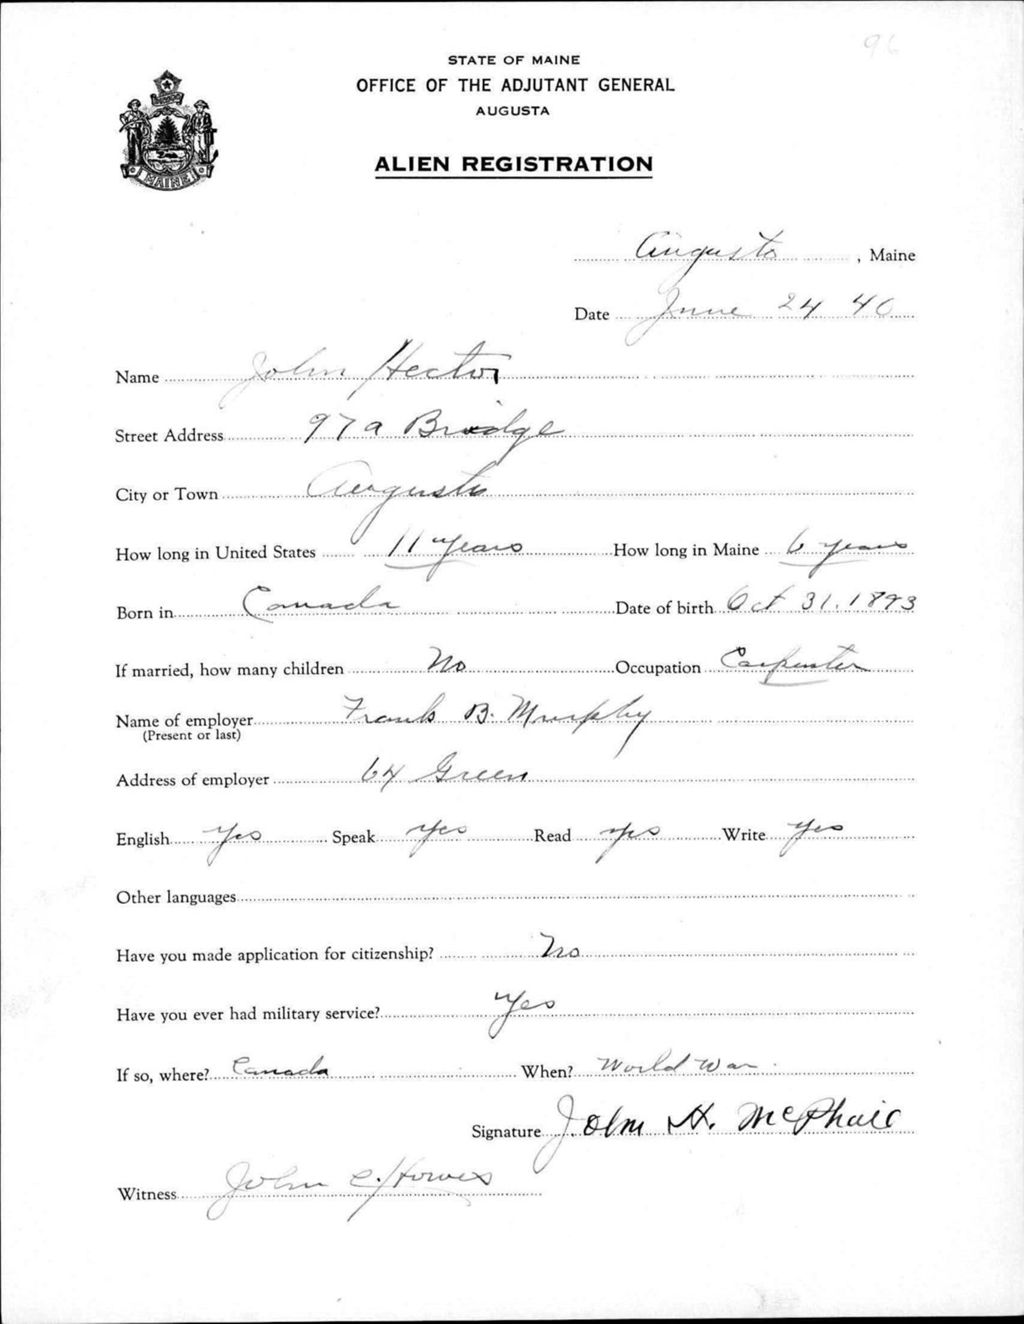 96
STATE OF MAINE
OFFICE OF THE ADJUTANT GENERAL
AUGUSTA
MAINE
ALIEN REGISTRATION
Augusta, Maine
Date June 24 40
Name John Hector
Street Address 97a Bridge
City or Town Augusta
How long in United States 11 years How long in Maine 6 years
Born in Canada Date of birth Oct 31. 1893
If married, how many children No Occupation Carpenter
Name of employer Frank B. Murphy
(Present or last)
Address of employer 64 Green
English Yes Speak Yes Read yes Write Yes
Other languages
Have you made application for citizenship? No
Have you ever had military service? Yes
If so, where? Canada When? World War.
Signature John H. McPhail
Witness John C. Howes